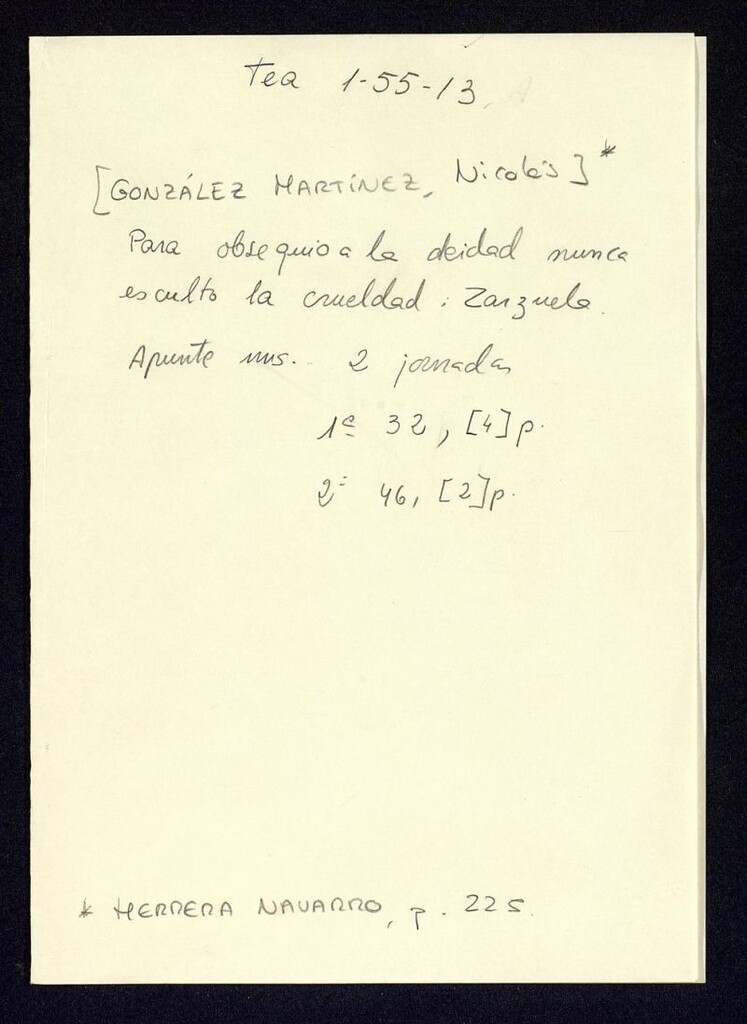 Tea 1-55-13, A
[GONZÁLEZ MARTÍNEZ, Nicolás] *
Para obsequio a la deidad nunca
es culto la crueldad : Zarzuela.
Apunte ms. 2 jornadas
1ª 32, [4] p.
2ª 46, [2] p.
* HERRERA NAVARRO, p. 225.